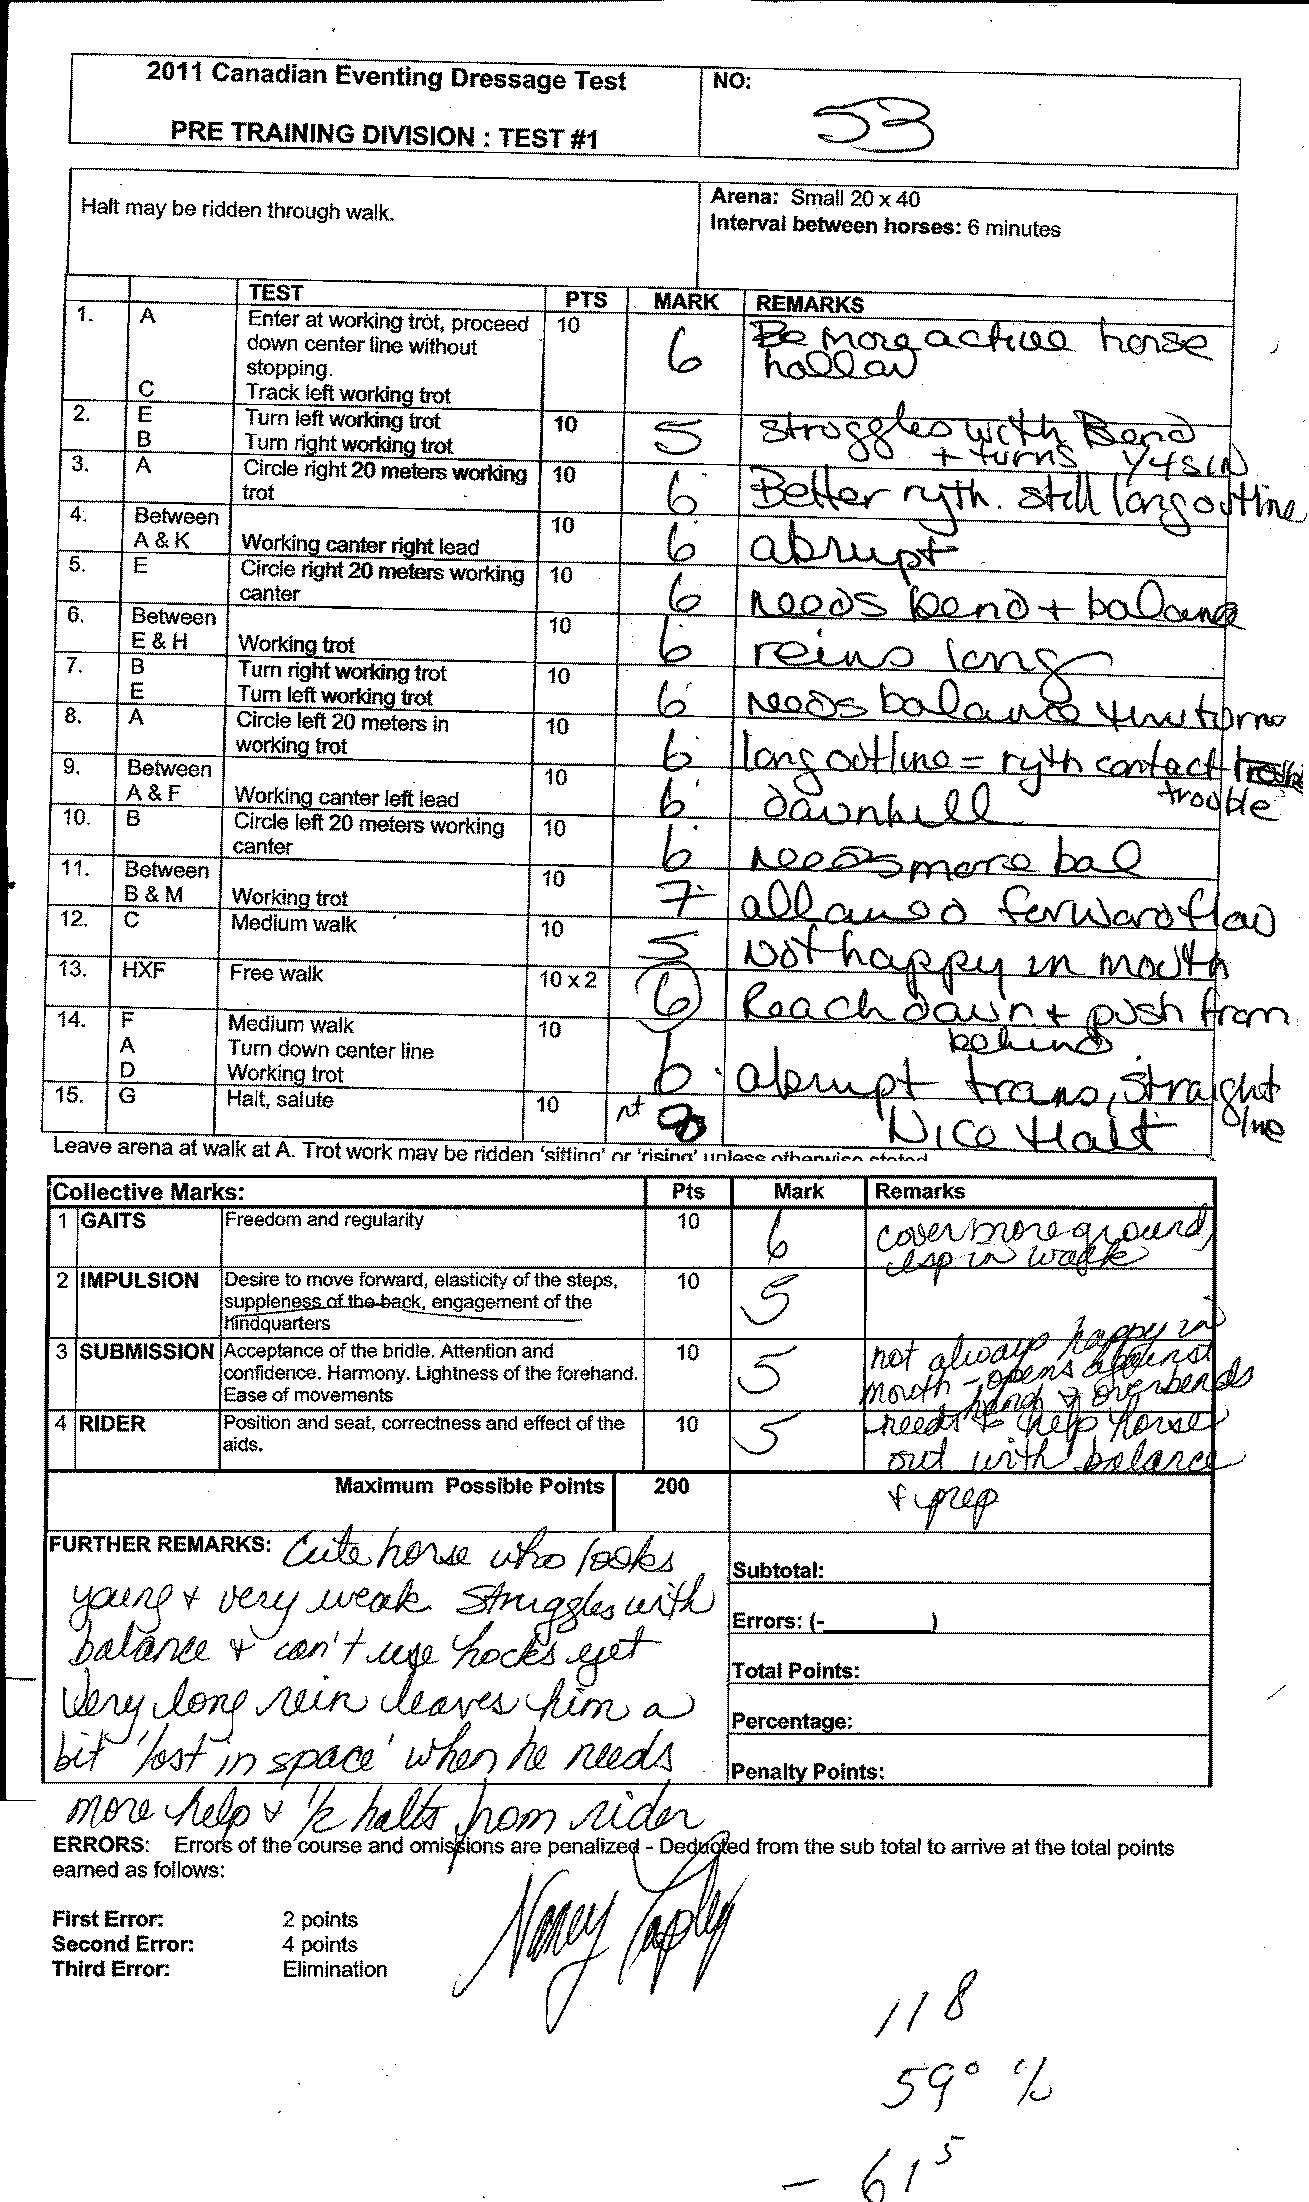 2011 Canadian Eventing Dressage Test
PRE TRAINING DIVISION : TEST #1
NO:
53
Halt may be ridden through walk.
Arena: Small 20 x 40
Interval between horses: 6 minutes
TEST PTS MARK REMARKS
1. A Enter at working trot, proceed 10 6 Be more active horse
down center line without hollow
stopping.
C Track left working trot
2. E Turn left working trot 10 5 struggles with Bend
B Turn right working trot + turns
3. A Circle right 20 meters working 10 6 Better ryth. still long outline
trot
4. Between 10 6 abrupt
A & K Working canter right lead
5. E Circle right 20 meters working 10 6 needs bend + balance
canter
6. Between 10 6 reins long
E & H Working trot
7. B Turn right working trot 10 6 needs balance thru turns
E Turn left working trot
8. A Circle left 20 meters in 10 6 long outline = ryth contact
working trot trouble
9. Between 10 6 downhill
A & F Working canter left lead
10. B Circle left 20 meters working 10 6 needs more bal
canter
11. Between 10 7 allows forward flow
B & M Working trot
12. C Medium walk 10 5 Not happy in mouth
13. HXF Free walk 10 x 2 6 Reach down + push from
behind
14. F Medium walk 10 6 abrupt trans, straight
A Turn down center line line
D Working trot
15. G Halt, salute 10 8 Nice Halt
Leave arena at walk at A. Trot work may be ridden 'sitting' or 'rising' unless otherwise stated
Collective Marks: Pts Mark Remarks
1 GAITS Freedom and regularity 10 6 cover more ground,
esp in walk
2 IMPULSION Desire to move forward, elasticity of the steps, 10 5
suppleness of the back, engagement of the
hindquarters
3 SUBMISSION Acceptance of the bridle. Attention and 10 5 not always happy in
confidence. Harmony. Lightness of the forehand. mouth - opens against
Ease of movements hand & overbends
4 RIDER Position and seat, correctness and effect of the 10 5 needs to help horse
aids. out with balance
& prep
Maximum Possible Points 200
FURTHER REMARKS: Cute horse who looks
young & very weak. Struggles with
balance & can't use hocks yet
Very long rein leaves him a
bit 'lost in space' when he needs
more help & 1/2 halts from rider
Subtotal:
Errors: (-________)
Total Points:
Percentage:
Penalty Points:
ERRORS: Errors of the course and omissions are penalized - Deducted from the sub total to arrive at the total points
earned as follows:
First Error: 2 points
Second Error: 4 points
Third Error: Elimination
Nancy Tapley
118
59° %
- 61⁵